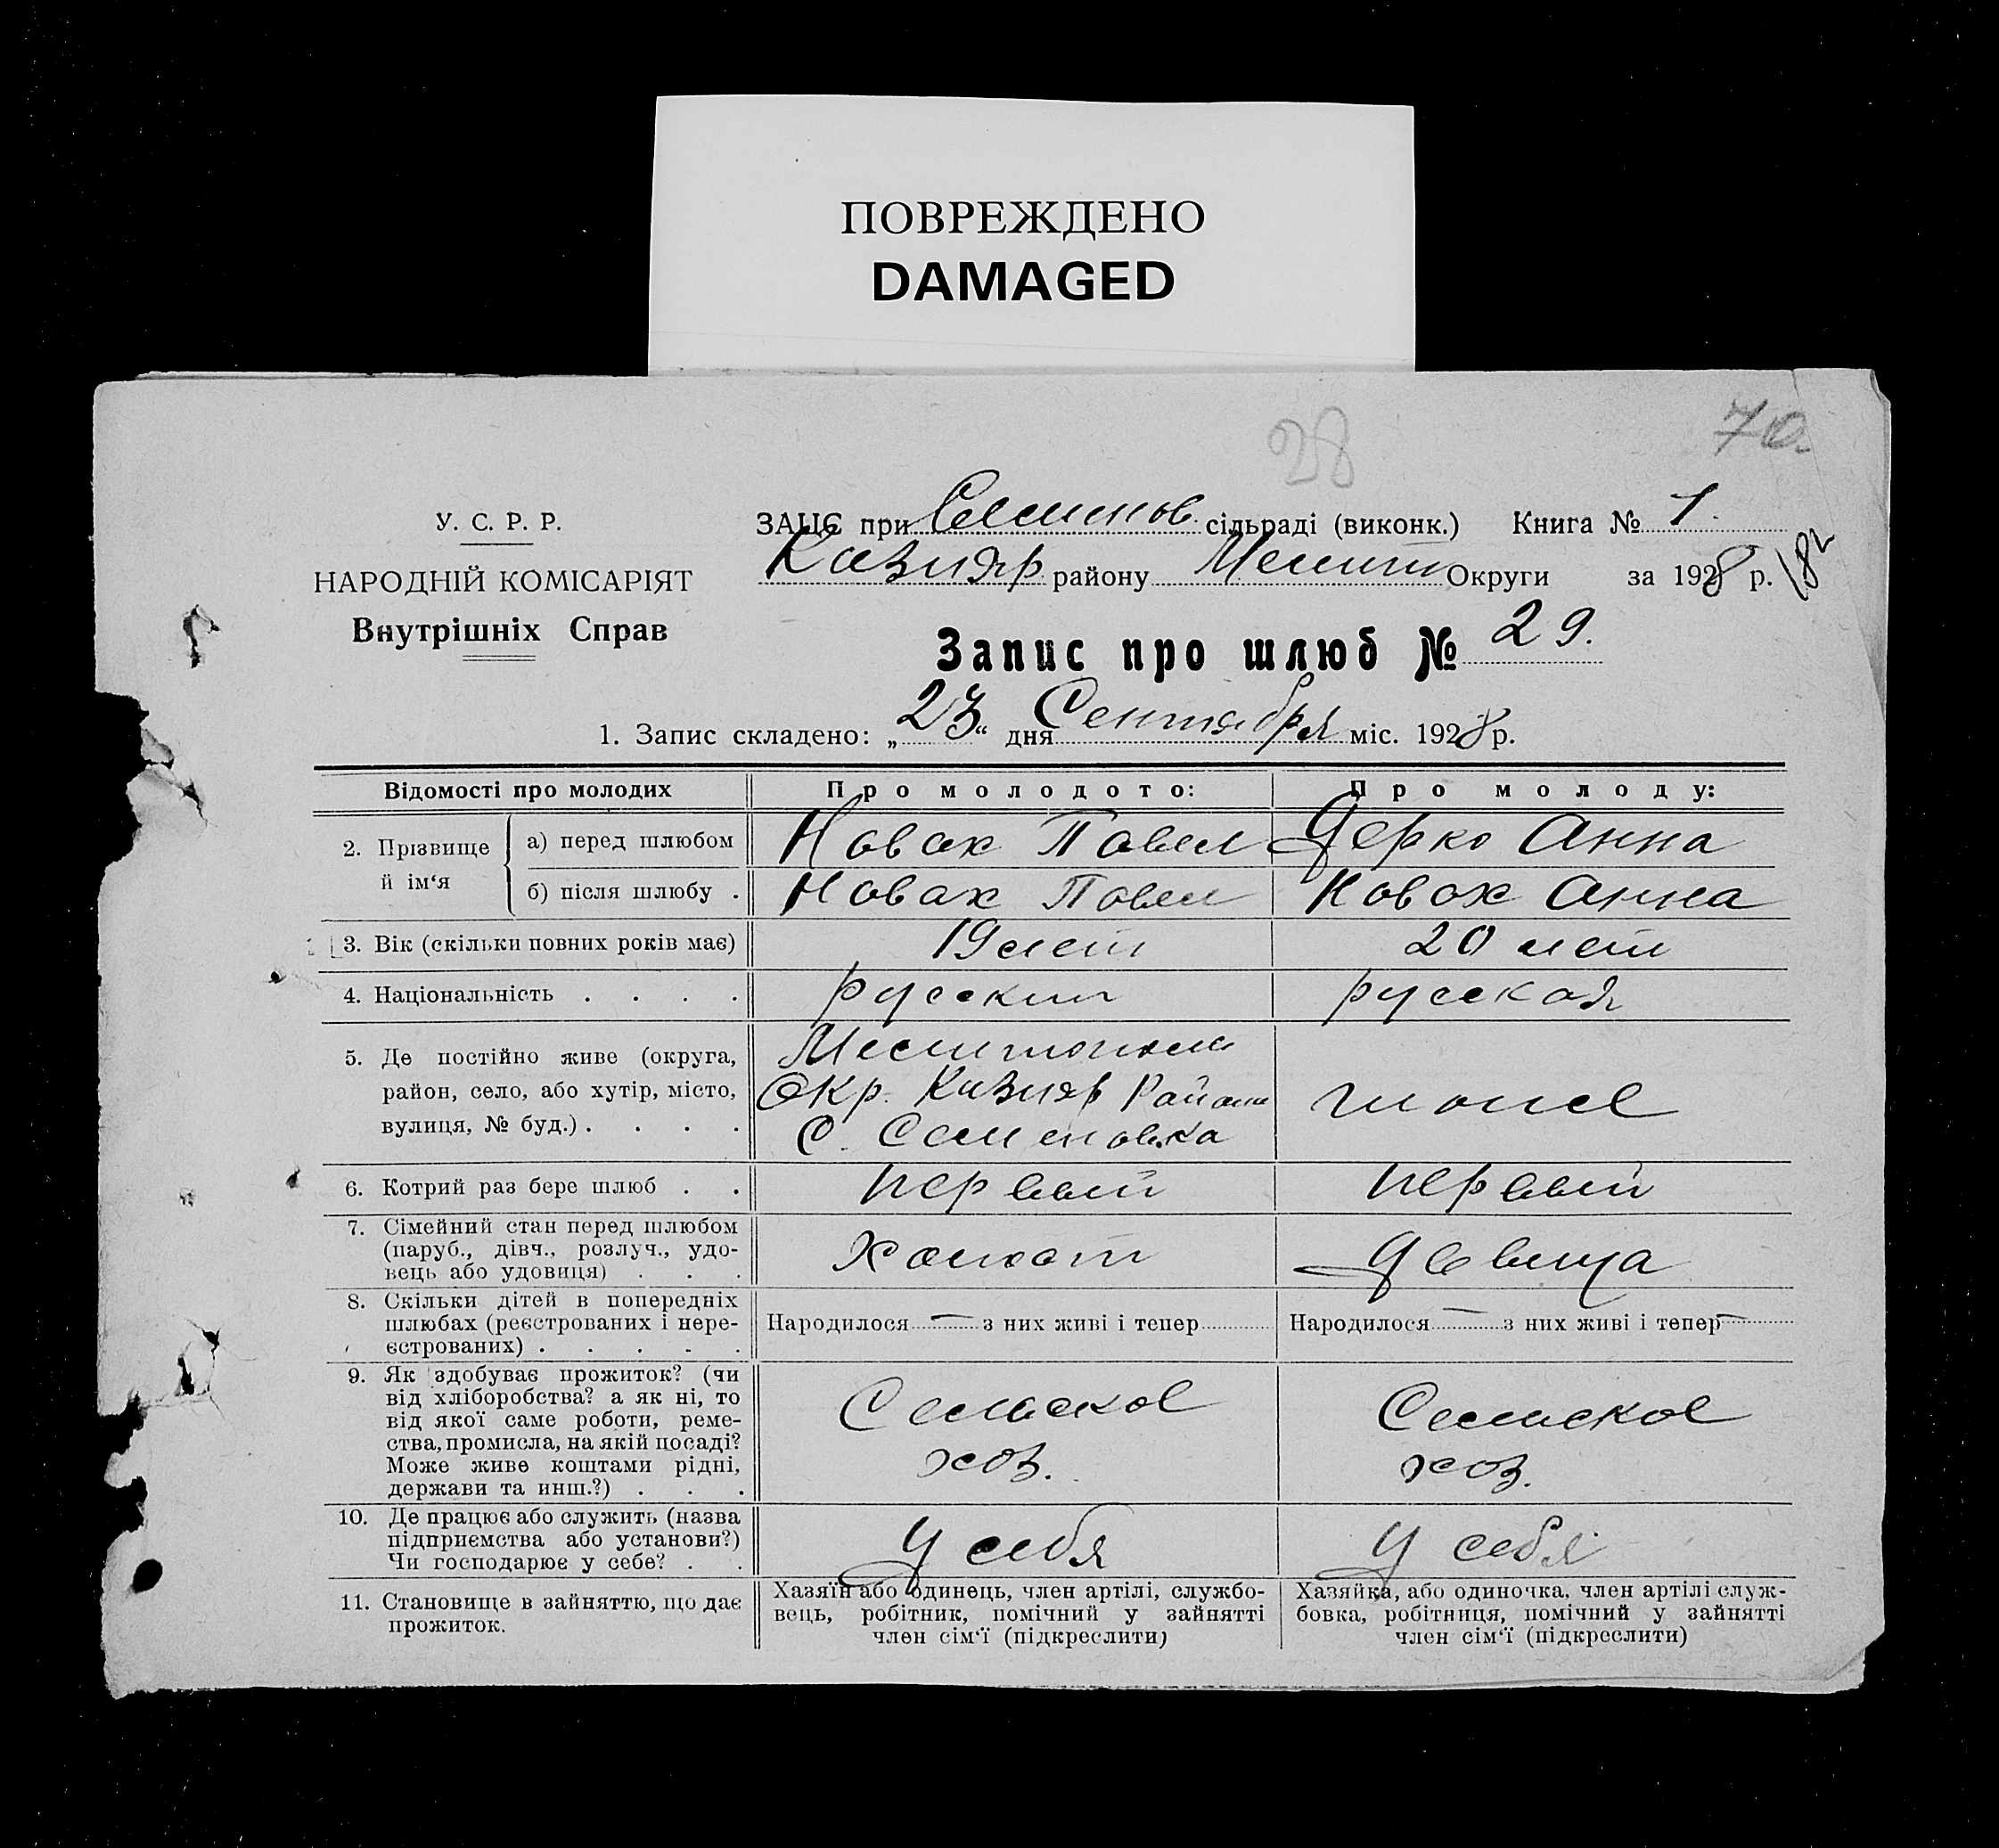 ПОВРЕЖДЕНО
DAMAGED
28
70.
У. С. Р. Р.
НАРОДНІЙ КОМІСАРІЯТ
Внутрішніх Справ
ЗАЦС при Семенов. сільраді (виконк.) Книга № 1.
району Мелит Округи за 1928 р.
182
Запис про шлюб № 29.
1. Запис складено: „23“ дня Сентября міс. 1928 р.
Відомості про молодих
Про молодого:
Про молоду:
2. Прізвище й ім‘я
а) перед шлюбом
Новак Павел
Дерко Анна
б) після шлюбу .
Новак Павел
Новак Анна
3. Вік (скільки повних років має)
19 лет
20 лет
4. Національність . . . .
русский
русская
5. Де постійно живе (округа,
район, село, або хутір, місто,
вулиця, № буд.) . . . .
Окр. Района
с. Семеновка
тоже
6. Котрий раз бере шлюб . .
первый
первый
7. Сімейний стан перед шлюбом
(паруб., дівч., розлуч., удо-
вець або удовиця) . . .
Холост
Девица
8. Скільки дітей в попередніх
шлюбах (реєстрованих і нере-
єстрованих) . . . . .
Народилося — з них живі і тепер
Народилося — з них живі і тепер —
9. Як здобуває прожиток? (чи
від хліборобства? а як ні, то
від якої саме роботи, реме-
ства, промисла, на якій посаді?
Може живе коштами рідні,
держави та инш.?) . . .
Сельское
хоз.
Сельское
хоз.
10. Де працює або служить (назва
підприємства або установи?)
Чи господарює у себе? . .
У себя
У себя
11. Становище в зайняттю, що дає
прожиток.
Хазяїн або одинець, член артілі, службо-
вець, робітник, помічний у зайнятті
член сім‘ї (підкреслити)
Хазяйка, або одиночка, член артілі служ-
бовка, робітниця, помічний у зайнятті
член сім‘ї (підкреслити)